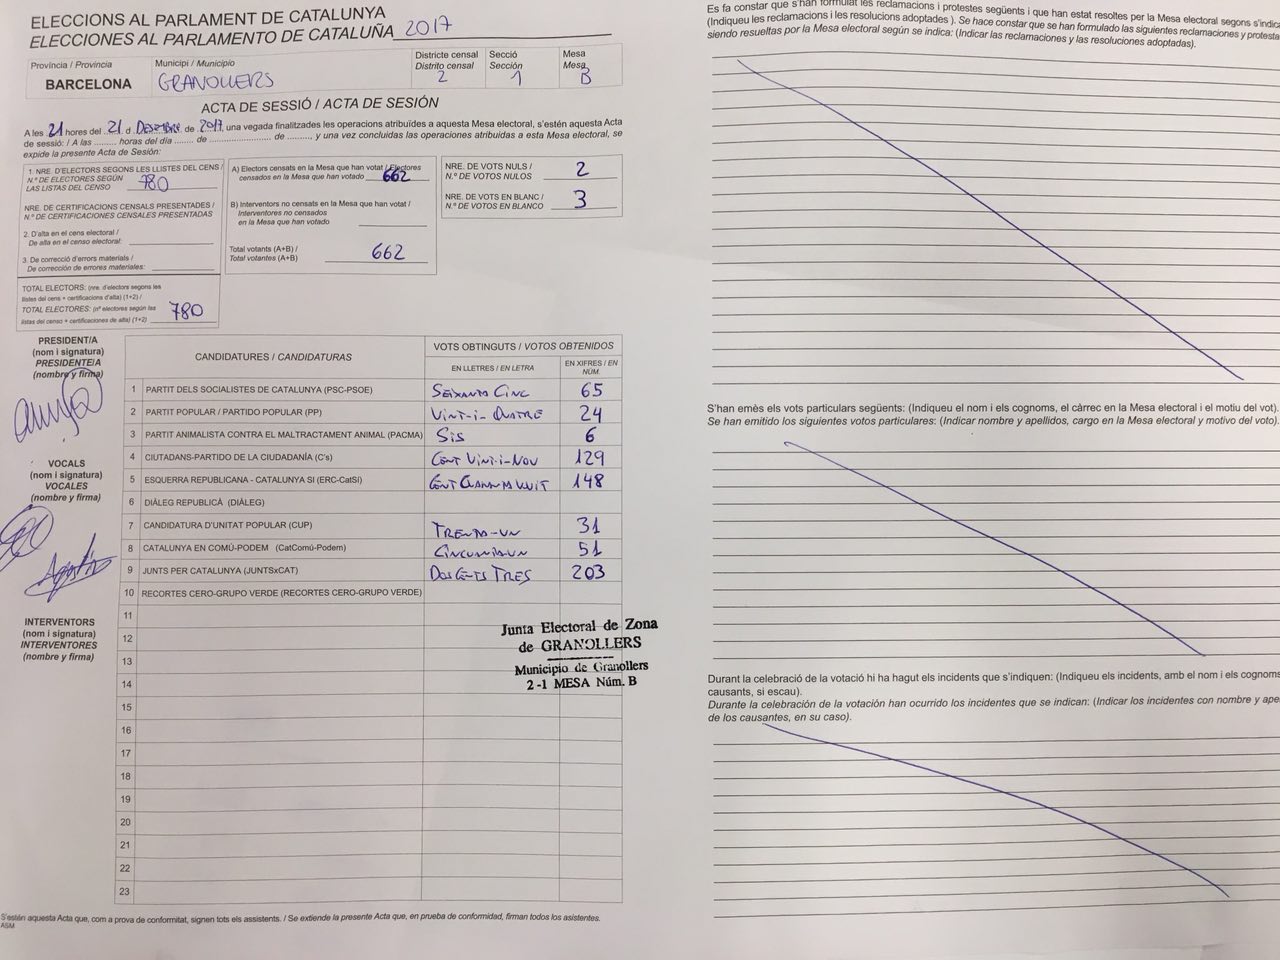 ELECCIONS AL PARLAMENT DE CATALUNYA
ELECCIONES AL PARLAMENTO DE CATALUÑA 2017
Província / Provincia
BARCELONA
Municipi / Municipio
GRANOLLERS
Districte censal
Distrito censal
2
Secció
Sección
1
Mesa
Mesa
B
ACTA DE SESSIÓ / ACTA DE SESIÓN
A les 21 hores del 21 d DESEMBRE de 2017, una vegada finalitzades les operacions atribuïdes a aquesta Mesa electoral, s'estén aquesta Acta
de sessió: / A las ......... horas del día ....... de ......................... de ........., y una vez concluidas las operaciones atribuidas a esta Mesa electoral, se
expide la presente Acta de Sesión:
1. NRE. D'ELECTORS SEGONS LES LLISTES DEL CENS /
N.º DE ELECTORES SEGÚN
LAS LISTAS DEL CENSO 780
NRE. DE CERTIFICACIONS CENSALS PRESENTADES /
N.º DE CERTIFICACIONES CENSALES PRESENTADAS
2. D'alta en el cens electoral /
De alta en el censo electoral:
3. De correcció d'errors materials /
De corrección de errores materiales:
TOTAL ELECTORS: (nre. d'electors segons les
llistes del cens + certificacions d'alta) (1+2) /
TOTAL ELECTORES: (nº electores según las
listas del censo + certificaciones de alta) (1+2) 780
A) Electors censats en la Mesa que han votat / Electores
censados en la Mesa que han votado 662
B) Interventors no censats en la Mesa que han votat /
Interventores no censados
en la Mesa que han votado
Total votants (A+B) /
Total votantes (A+B) 662
NRE. DE VOTS NULS /
N.º DE VOTOS NULOS 2
NRE. DE VOTS EN BLANC /
N.º DE VOTOS EN BLANCO 3
PRESIDENT/A
(nom i signatura)
PRESIDENTE/A
(nombre y firma)
VOCALS
(nom i signatura)
VOCALES
(nombre y firma)
Agustín
INTERVENTORS
(nom i signatura)
INTERVENTORES
(nombre y firma)
CANDIDATURES / CANDIDATURAS
VOTS OBTINGUTS / VOTOS OBTENIDOS
EN LLETRES / EN LETRA
EN XIFRES / EN NÚM.
1 PARTIT DELS SOCIALISTES DE CATALUNYA (PSC-PSOE) SEIXANTA CINC 65
2 PARTIT POPULAR / PARTIDO POPULAR (PP) VINT-I-QUATRE 24
3 PARTIT ANIMALISTA CONTRA EL MALTRACTAMENT ANIMAL (PACMA) SIS 6
4 CIUTADANS-PARTIDO DE LA CIUDADANÍA (C's) CENT VINT-I-NOU 129
5 ESQUERRA REPUBLICANA - CATALUNYA SÍ (ERC-CatSí) CENT QUARANTA VUIT 148
6 DIÀLEG REPUBLICÀ (DIÀLEG)
7 CANDIDATURA D'UNITAT POPULAR (CUP) TRENTA-UN 31
8 CATALUNYA EN COMÚ-PODEM (CatComú-Podem) CINCUANTA-UN 51
9 JUNTS PER CATALUNYA (JUNTSxCAT) DOSCENTS TRES 203
10 RECORTES CERO-GRUPO VERDE (RECORTES CERO-GRUPO VERDE)
11
12
13
14
15
16
17
18
19
20
21
22
23
Junta Electoral de Zona
de GRANOLLERS
Municipio de Granollers
2-1 MESA Núm. B
S'estén aquesta Acta que, com a prova de conformitat, signen tots els assistents. / Se extiende la presente Acta que, en prueba de conformidad, firman todos los asistentes.
ASM
Es fa constar que s'han formulat les reclamacions i protestes següents i que han estat resoltes per la Mesa electoral segons s'indica
(Indiqueu les reclamacions i les resolucions adoptades ). Se hace constar que se han formulado las siguientes reclamaciones y protesta
siendo resueltas por la Mesa electoral según se indica: (Indicar las reclamaciones y las resoluciones adoptadas).
S'han emès els vots particulars següents: (Indiqueu el nom i els cognoms, el càrrec en la Mesa electoral i el motiu del vot).
Se han emitido los siguientes votos particulares: (Indicar nombre y apellidos, cargo en la Mesa electoral y motivo del voto).
Durant la celebració de la votació hi ha hagut els incidents que s'indiquen: (Indiqueu els incidents, amb el nom i els cognoms
causants, si escau).
Durante la celebración de la votación han ocurrido los incidentes que se indican: (Indicar los incidentes con nombre y ape
de los causantes, en su caso).